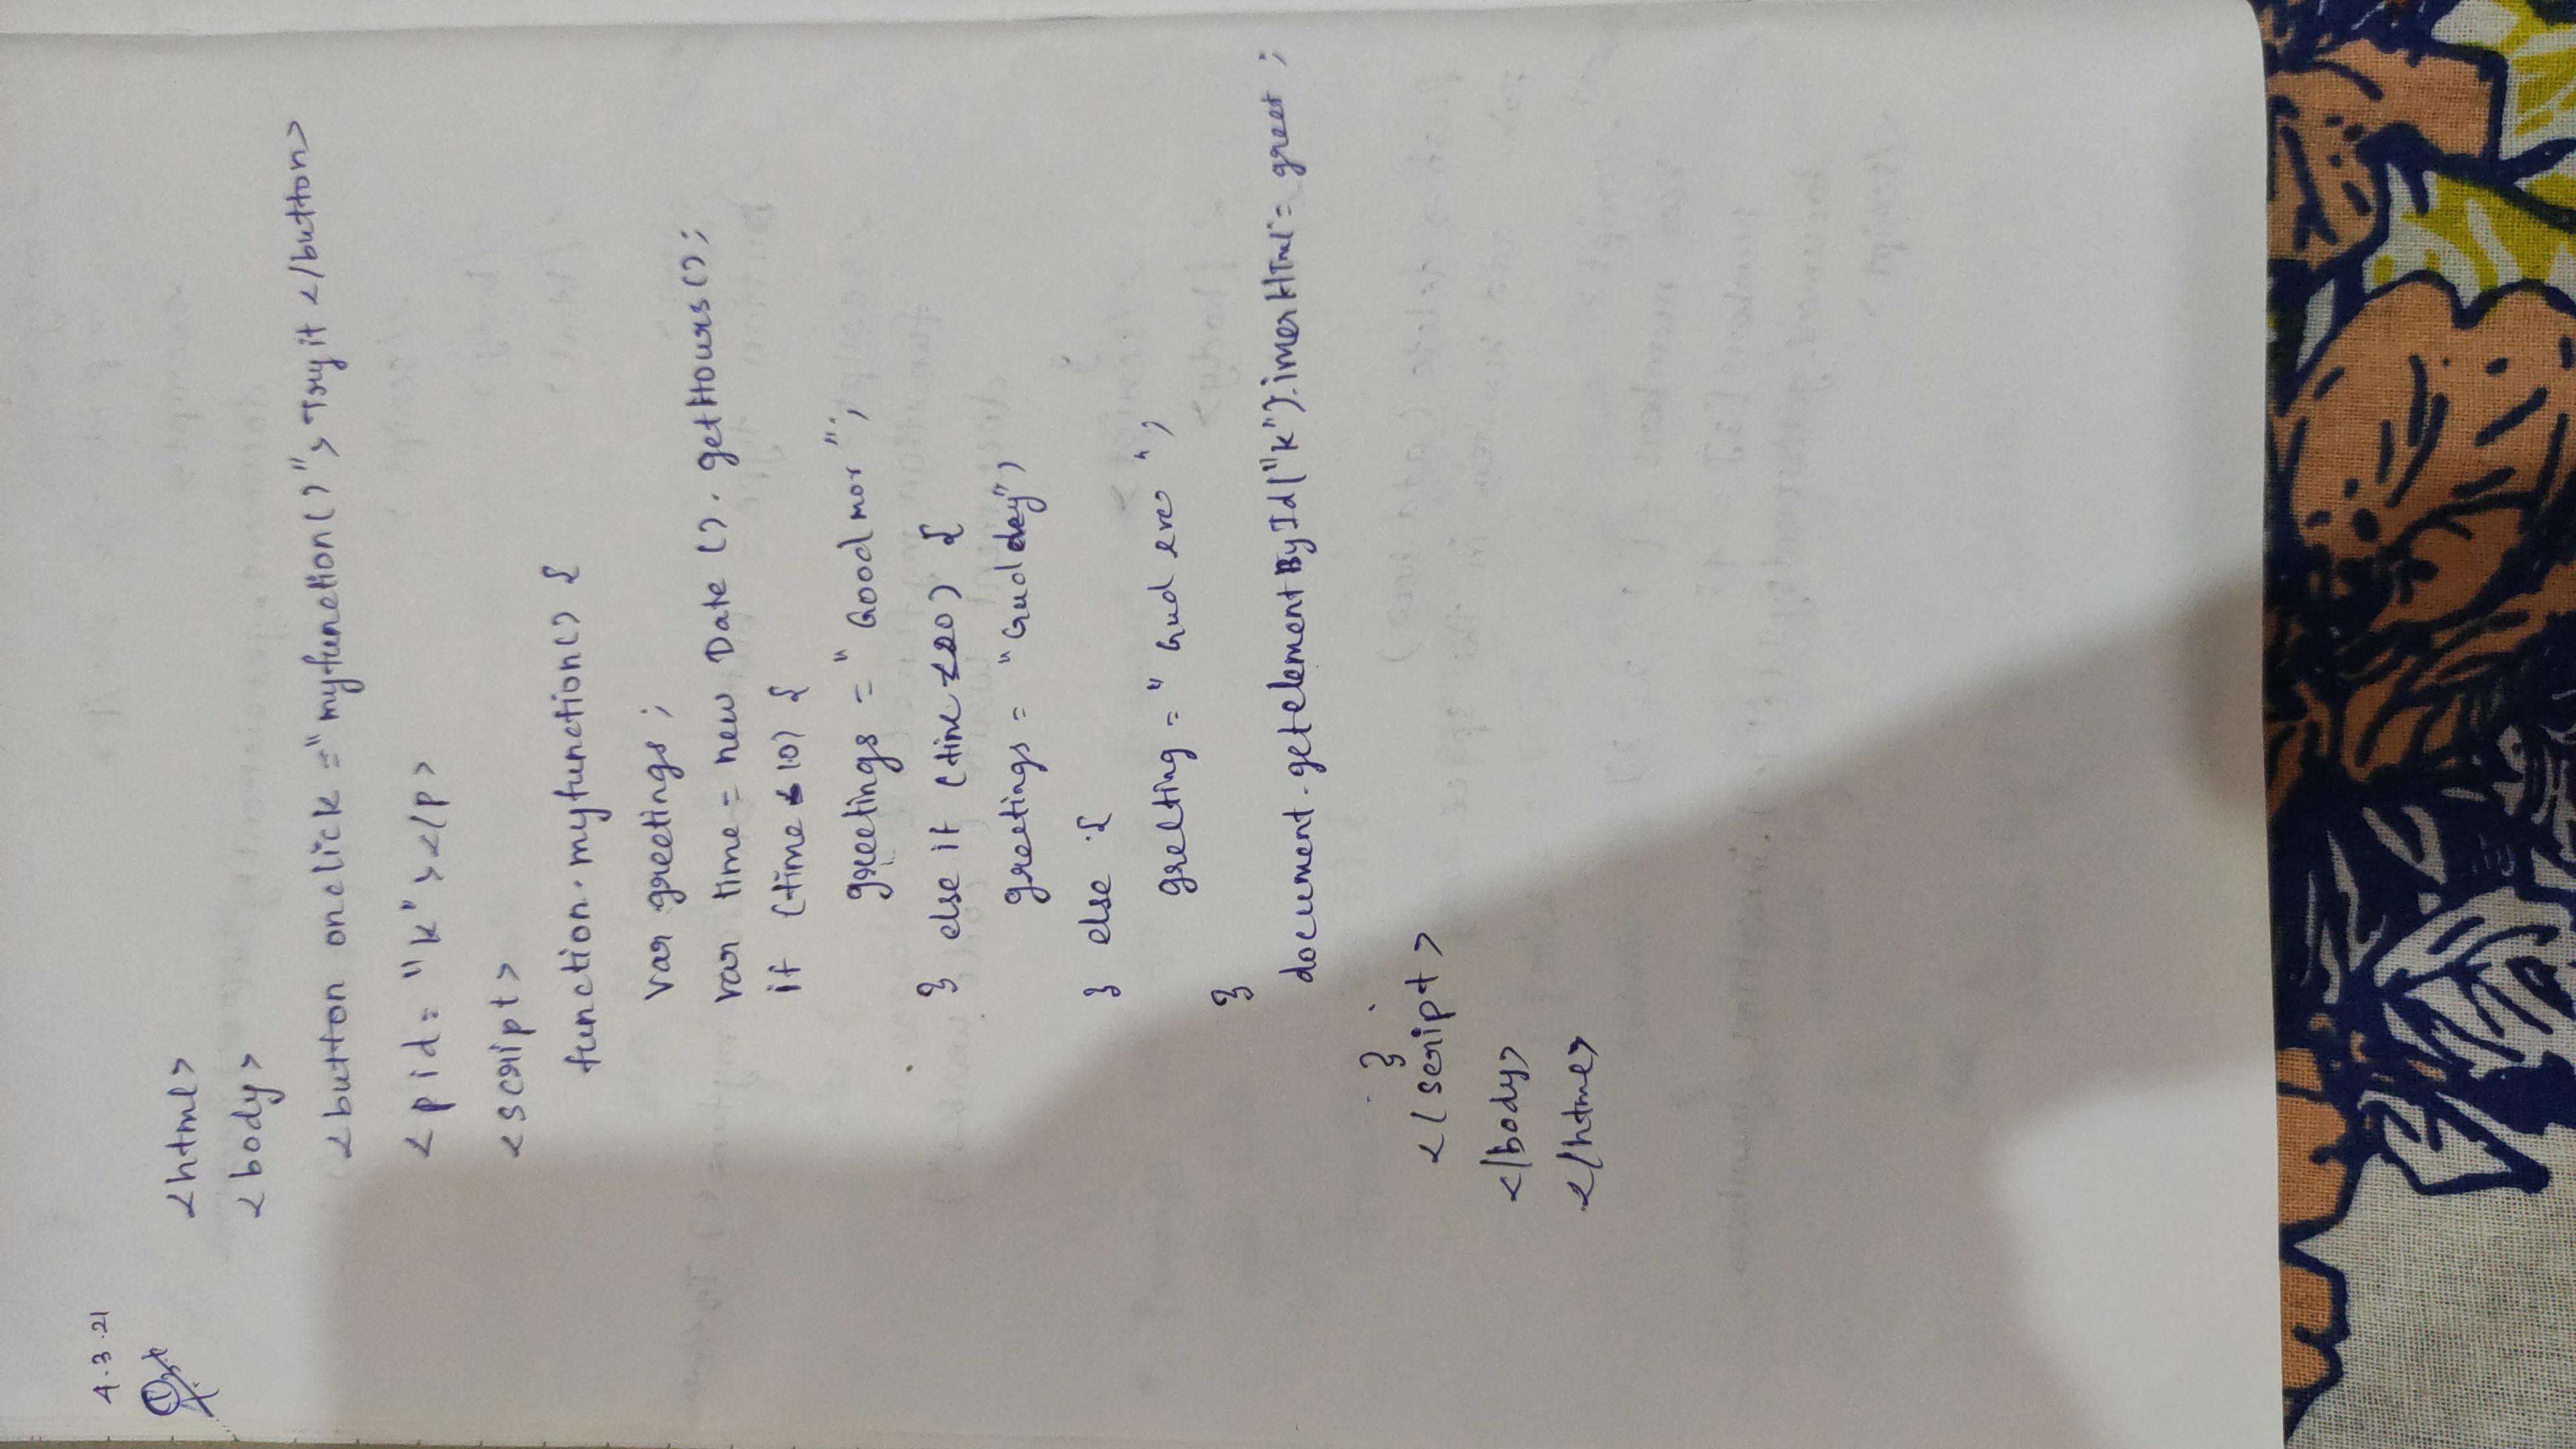 4.3.21
<html>
<body>
<button onclick="myfunction()"> Try it </button>
<p id= "k"></p>
<script>
function myfunction() {
var greetings;
var time = new Date().getHours();
if (time < 10) {
greetings = "Good mor";
} else if (time <20) {
greetings = "Gud day";
} else {
greeting = "Gud eve";
}
document.getelementById("k").innerHtml = greet;
}
</script>
</body>
</html>